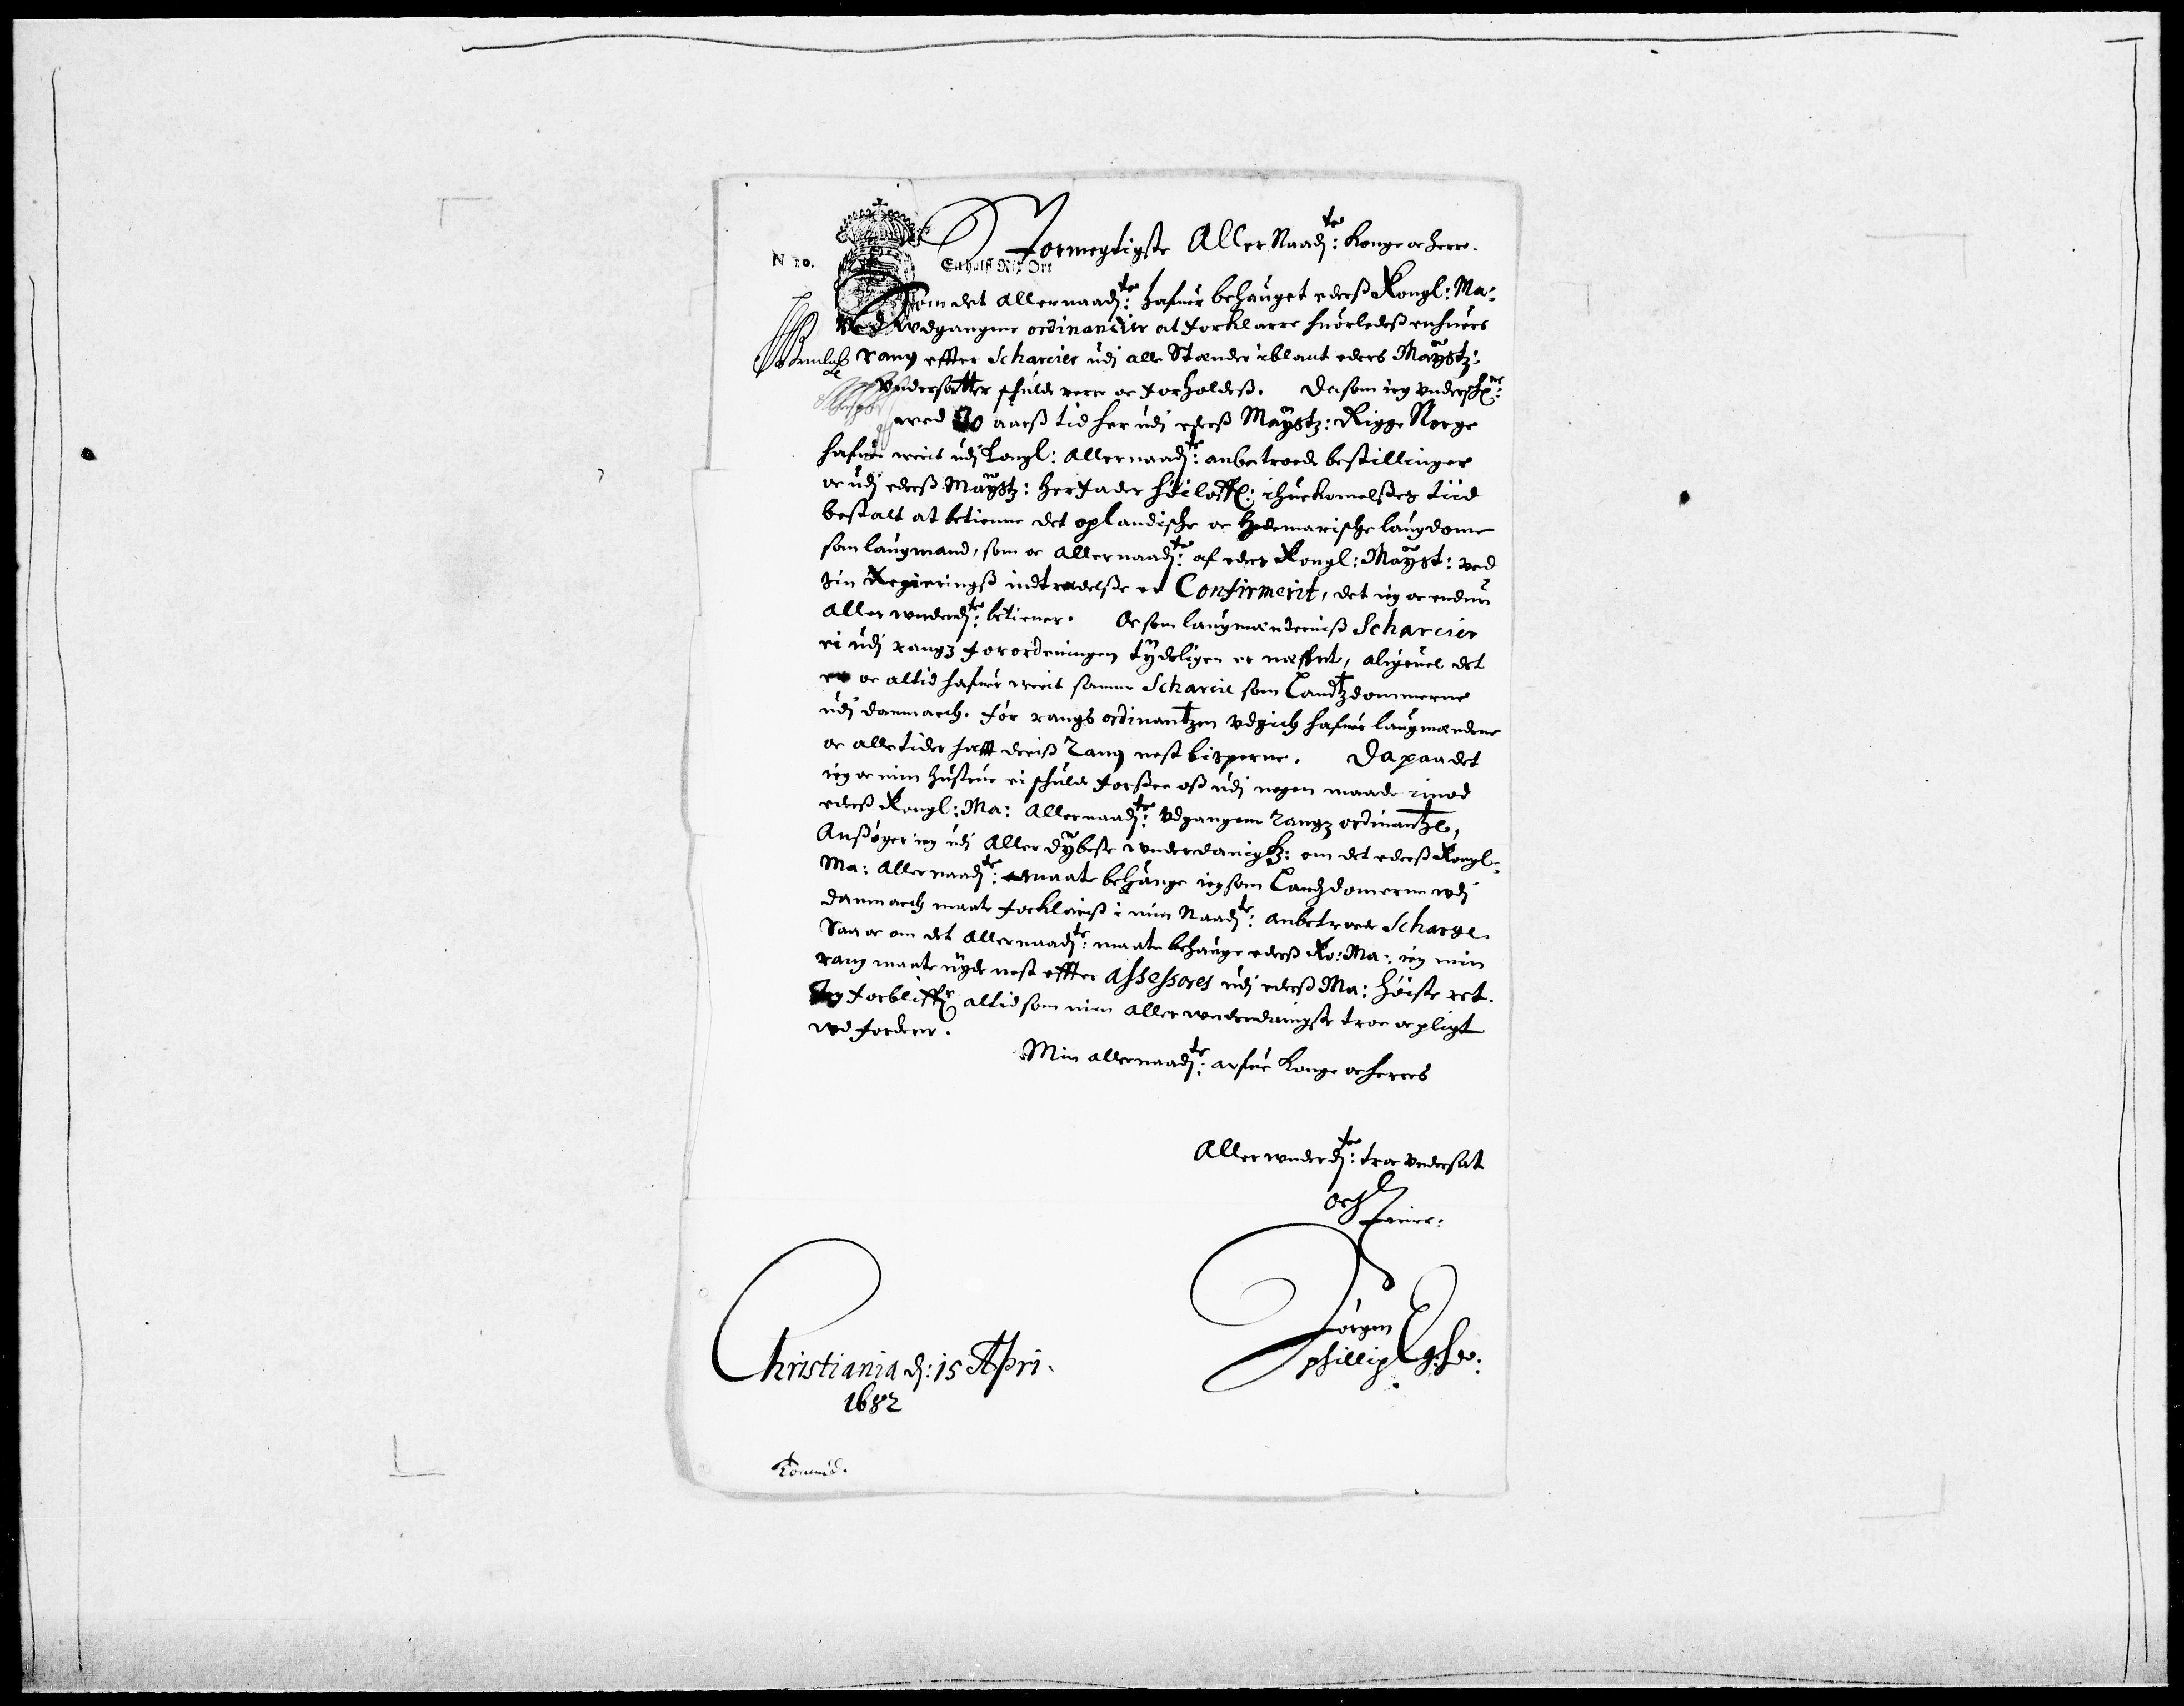 N 20.
Stormegtigste Aller Naadj:te Konge oc herre.
En half Rix Ort
Som det allernaadj:te hafuer behauget ederß Kongl: Ma:
Ved udgangene ordinancier at forklarre huorledeß enhuers
Rang effter Scharcier udj alle Stænder iblant eders Mayßtz:
Undersatter schulde verre oc forholdeß. Da som ieg undersch:ne
ved 30 aarß tid her udj ederß Mayßtz: Rigge Norge
hafuer verit udj Kongl: allernaadj:te anbetroede bestillinger
oc udj ederß Mayßtz: her fader høiloffl: ihuekomelßes tiid
bestalt at betienne det oplandische oc Hedemarische laugdome
som laugmand, som oc allernaadj:te af eders Kongl: Mayßt: ved
sin Regieringß indtredelße er Confirmerit, det ieg oc endnu
aller underdj:te betiener. Oc som laugmænderniß Scharcier
ei udj rangz forordeningen tydeligen er neffnt, aligeuel det
er oc altid hafuer verit samme Scharcie som Landtzdommerne
udj danmarch. før rangs ordinantzen udgich hafuer laugmændene
oc alle tider hafft deriß Rang nest bisperne. Da paa det
ieg oc min hustrue ei schulde forßee oß udj nogen maade imod
ederß Kongl: Ma: Allernaadj:te udgangene Rangz ordinantze,
Anßøger ieg udj Aller dybeste underdanighz: om det ederß Kongl:
Ma: Allernaadj:te maate behauge ieg som Landzdomerne udj
danmarch maate forklariß i min Naadj:te anbetroede Scharge.
Saa oc om det Allernaadj:te maate behauge ederß Ko: Ma: ieg min
rang maate nyde nest effter Assessores udj ederß Ma: høiste ret.
Ieg forbliffr altid som min aller underdanigste troe oc pligt
udfordrer.
Min allernaadj:te arfue Konge oc herres
Aller underdj:te troe undersat
och
tiener.
Jørgen
phillipß
Christiania dj: 15 Apri.
1682